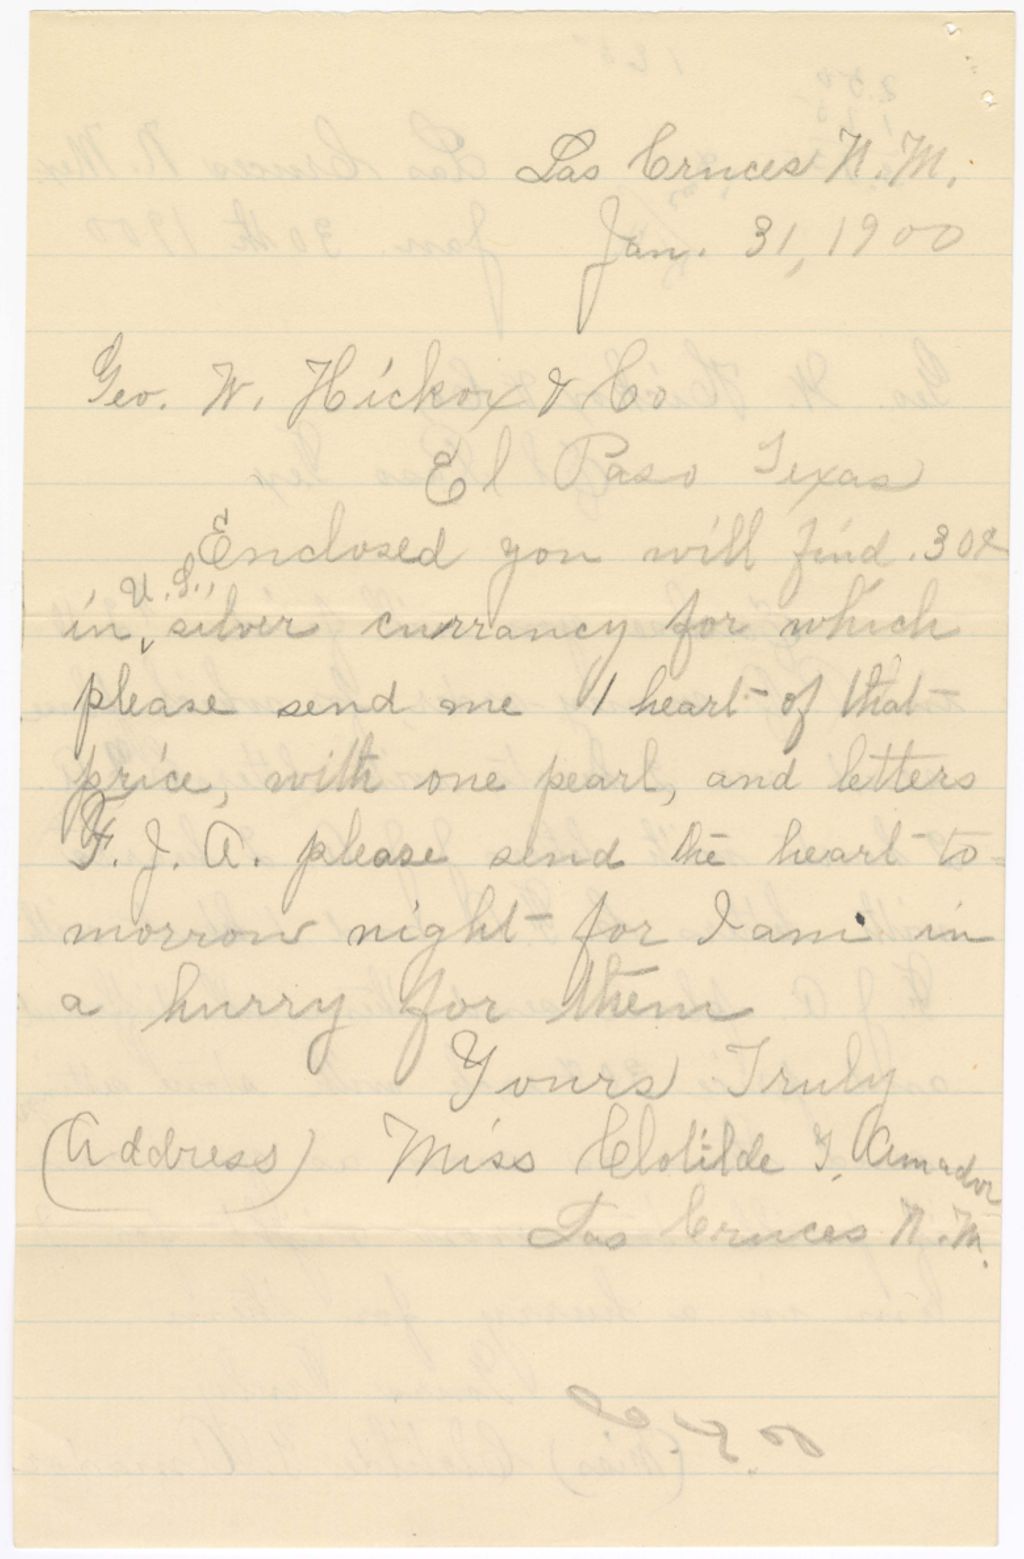 Las Cruces N. M.
Jan. 31, 1900
Geo. W. Hickox & Co
El Paso Texas
Enclosed you will find .30¢
in U.S., silver currancy for which
please send me 1 heart of that
price, with one pearl, and letters
F. J. A. please send the heart to-
morrow night for I am in
a hurry for them
Yours Truly
(Address) Miss Clotilde Y. Amador
Las Cruces N. M.